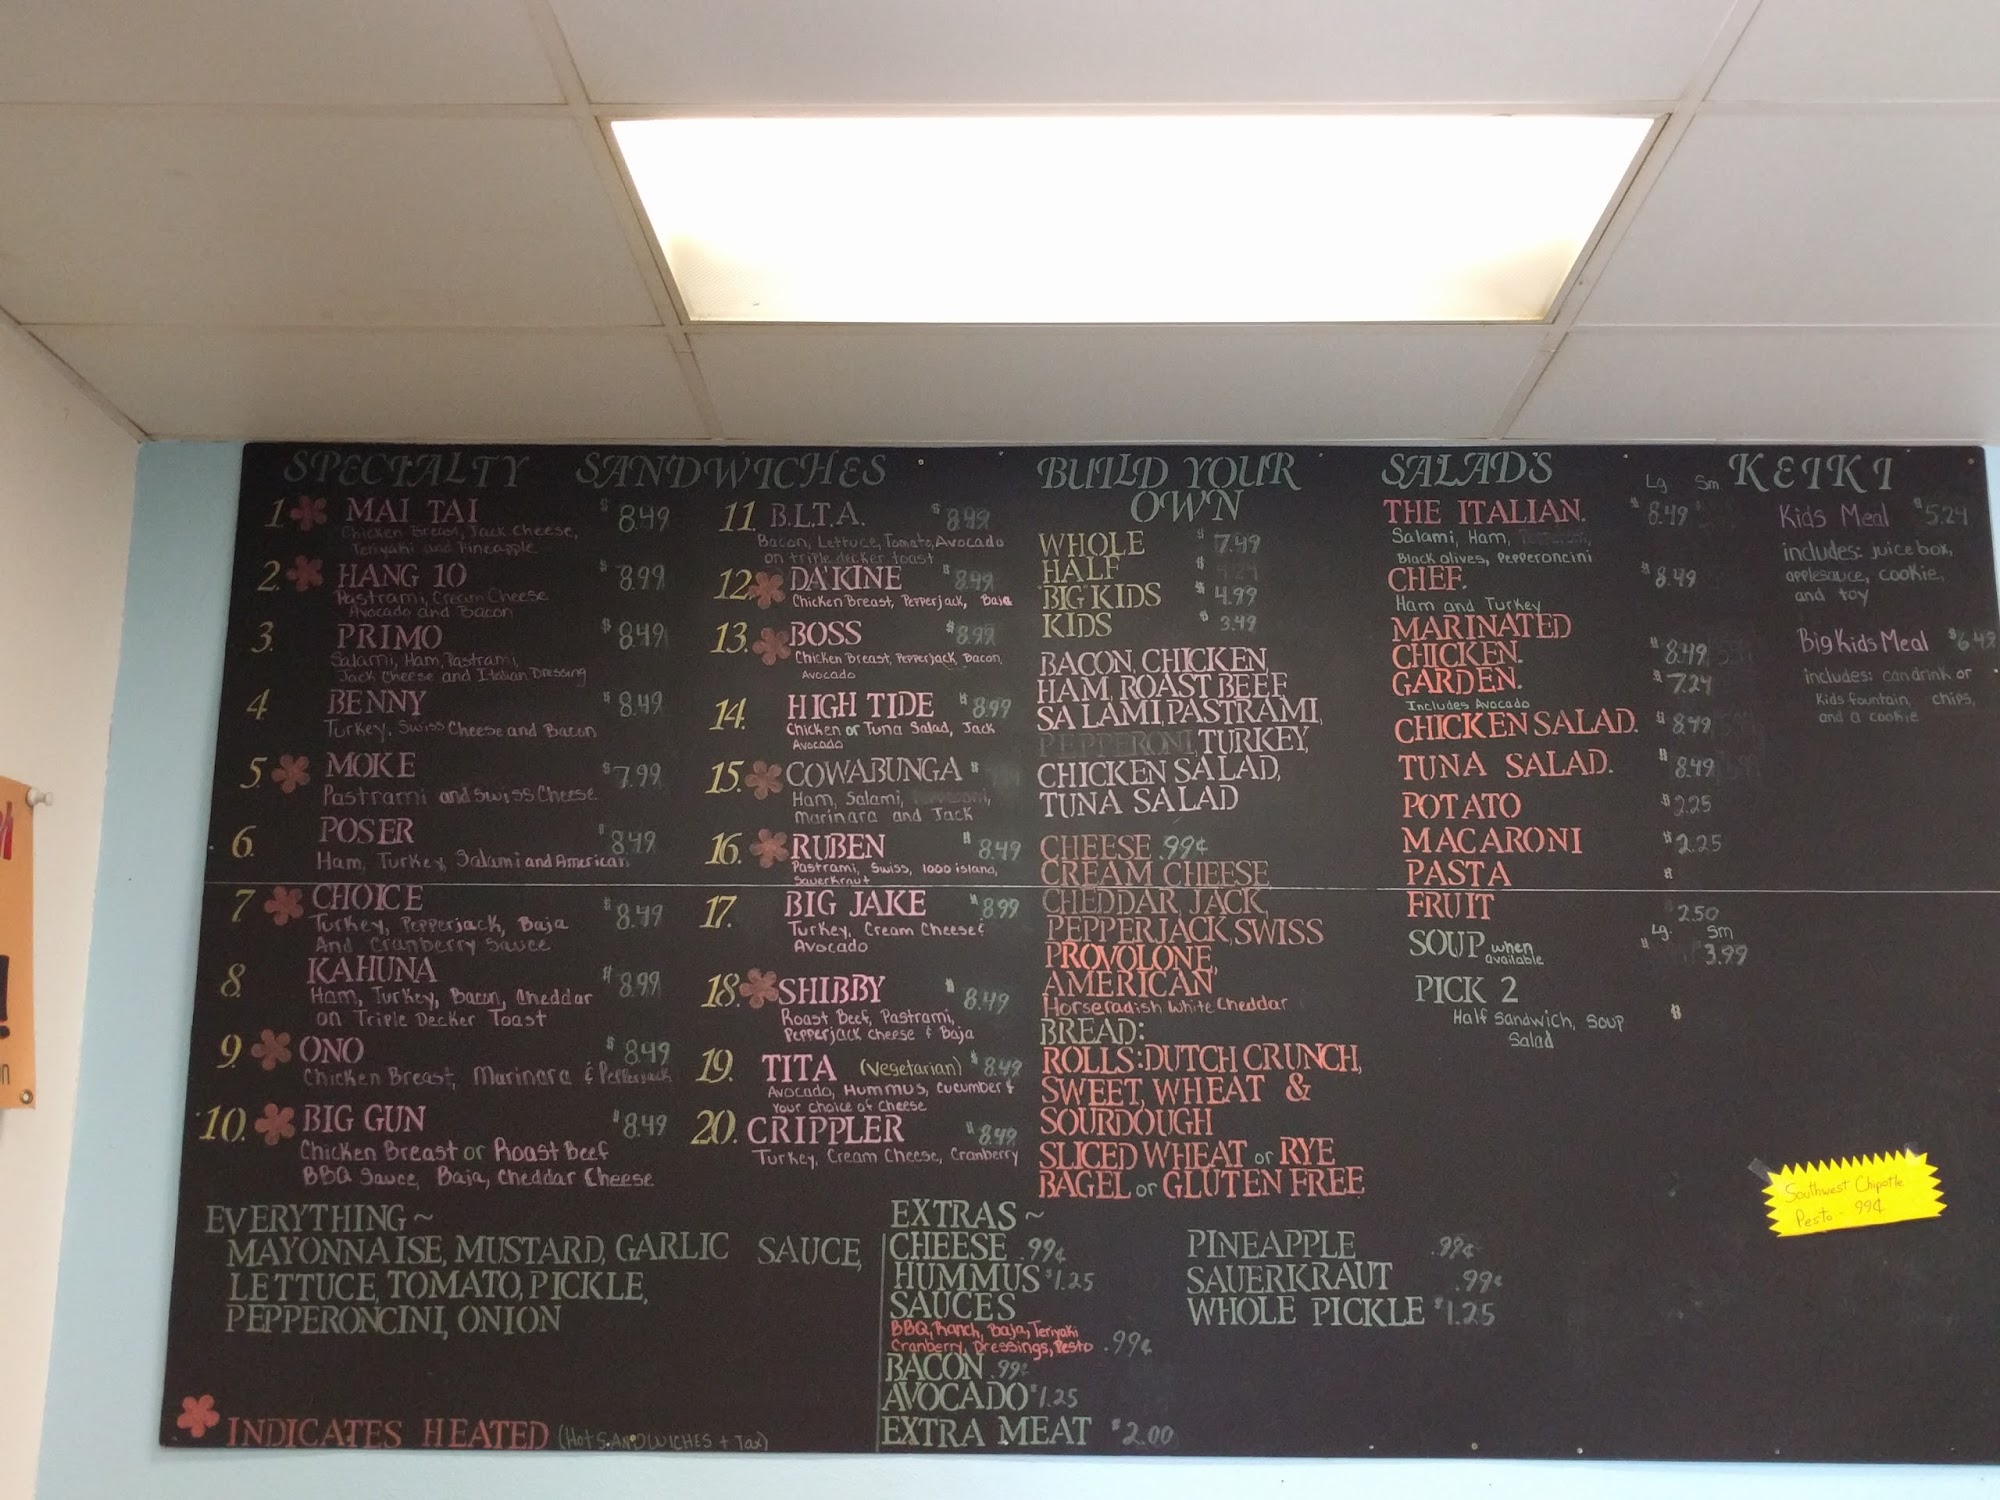 SPECIALTY SANDWICHES
1 MAI TAI $8.49
Chicken Breast, Jack Cheese,
Teriyaki and Pineapple
2. HANG 10 $8.99
Pastrami, Cream Cheese
Avocado and Bacon
3. PRIMO $8.49
Salami, Ham, Pastrami,
Jack Cheese and Italian Dressing
4 BENNY $8.49
Turkey, Swiss Cheese and Bacon
5 MOKE $7.99
Pastrami and Swiss Cheese
6. POSER $8.49
Ham, Turkey, Salami and American
7 CHOICE $8.49
Turkey, Pepperjack, Baja
And Cranberry Sauce
8. KAHUNA $8.99
Ham, Turkey, Bacon, Cheddar
on Triple Decker Toast
9. ONO $8.49
Chicken Breast, Marinara & Pepperjack
10. BIG GUN $8.49
Chicken Breast or Roast Beef
BBQ Sauce, Baja, Cheddar Cheese
11 B.L.T.A. $8.99
Bacon, Lettuce, Tomato, Avocado
on triple decker toast
12. DA'KINE $8.49
Chicken Breast, Pepperjack, Baja
13. BOSS $8.99
Chicken Breast, Pepperjack, Bacon,
Avocado
14. HIGH TIDE $8.99
Chicken or Tuna Salad, Jack
Avocado
15. COWABUNGA $
Ham, Salami,
Marinara and Jack
16. RUBEN $8.49
Pastrami, Swiss, 1000 island,
Sauerkraut
17. BIG JAKE $8.99
Turkey, Cream Cheese &
Avocado
18. SHIBBY $8.49
Roast Beef, Pastrami,
Pepperjack cheese & Baja
19. TITA (Vegetarian) $8.49
Avocado, Hummus, cucumber &
Your choice of Cheese
20. CRIPPLER $8.49
Turkey, Cream Cheese, Cranberry
BUILD YOUR
OWN
WHOLE $7.49
HALF $
BIG KIDS $4.99
KIDS $3.49
BACON, CHICKEN,
HAM, ROAST BEEF,
SALAMI, PASTRAMI,
PEPPERONI, TURKEY,
CHICKEN SALAD,
TUNA SALAD
CHEESE .99¢
CREAM CHEESE
CHEDDAR, JACK,
PEPPERJACK, SWISS
PROVOLONE,
AMERICAN
Horseradish White Cheddar
BREAD:
ROLLS: DUTCH CRUNCH,
SWEET, WHEAT &
SOURDOUGH
SLICED WHEAT or RYE
BAGEL or GLUTEN FREE
SALADS Lg Sm
THE ITALIAN. $8.49
Salami, Ham,
Black olives, Pepperoncini
CHEF. $8.49
Ham and Turkey
MARINATED
CHICKEN. $8.49
GARDEN. $7.24
Includes Avocado
CHICKEN SALAD. $8.49
TUNA SALAD. $8.49
POTATO $2.25
MACARONI $2.25
PASTA $
FRUIT 2.50
Lg. Sm
SOUP when available $ 3.99
PICK 2 $
Half Sandwich, Soup
Salad
KEIKI
Kids Meal $5.24
includes: juice box,
applesauce, cookie,
and toy
Big Kids Meal
includes: can drink or
Kids fountain, chips,
and a cookie
Southwest Chipotle
Pesto - 99¢
EVERYTHING ~
MAYONNAISE, MUSTARD, GARLIC SAUCE,
LETTUCE, TOMATO, PICKLE,
PEPPERONCINI, ONION
INDICATES HEATED (Hot SANDWICHES + Tax)
EXTRAS ~
CHEESE .99¢
HUMMUS $1.25
SAUCES
BBQ, Ranch, Baja, Teriyaki
Cranberry, Dressings, Pesto .99¢
BACON .99¢
AVOCADO $1.25
EXTRA MEAT $2.00
PINEAPPLE .99¢
SAUERKRAUT .99¢
WHOLE PICKLE $1.25